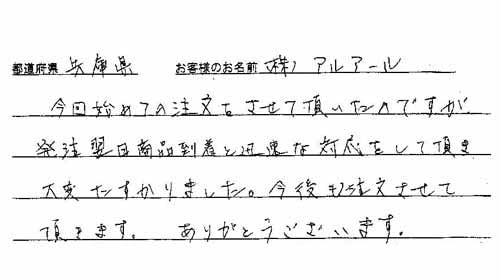 都道府県 兵庫県 お客様のお名前 (株)アルアール
今回始めての注文をさせて頂いたのですが
発注翌日商品到着と迅速な対応をして頂き
大変たすかりました。今後も注文させて
頂きます。 ありがとうございます。